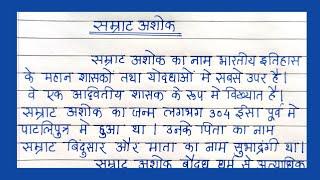 सम्राट अशोक
सम्राट अशोक का नाम भारतीय इतिहास
के महान शासकों तथा योद्धाओं में सबसे उपर है।
वे एक अद्वितीय शासक के रूप में विख्यात है।
सम्राट अशोक का जन्म लगभग 304 ईसा पूर्व में
पाटलिपुत्र में हुआ था। उनके पिता का नाम
सम्राट बिंदुसार और माता का नाम सुभाद्रंगी था।
सम्राट अशोक बौद्ध धर्म से अत्याधिक